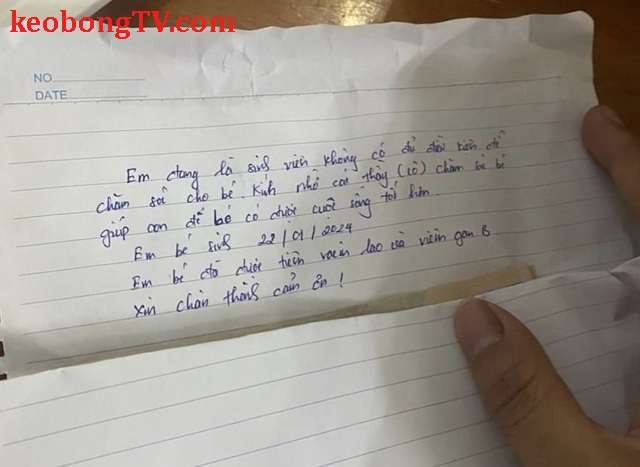 keobongTV.com
NO.
DATE
Em đang là sinh viên không có đủ điều kiện để
chăm sóc cho bé. Kính nhờ các thầy (cô) chăm bé
giúp con để bé có được cuộc sống tốt hơn
Em bé sinh 22/01/2024
Em bé đã được tiêm vacin lao và viêm gan B
xin chân thành cảm ơn!